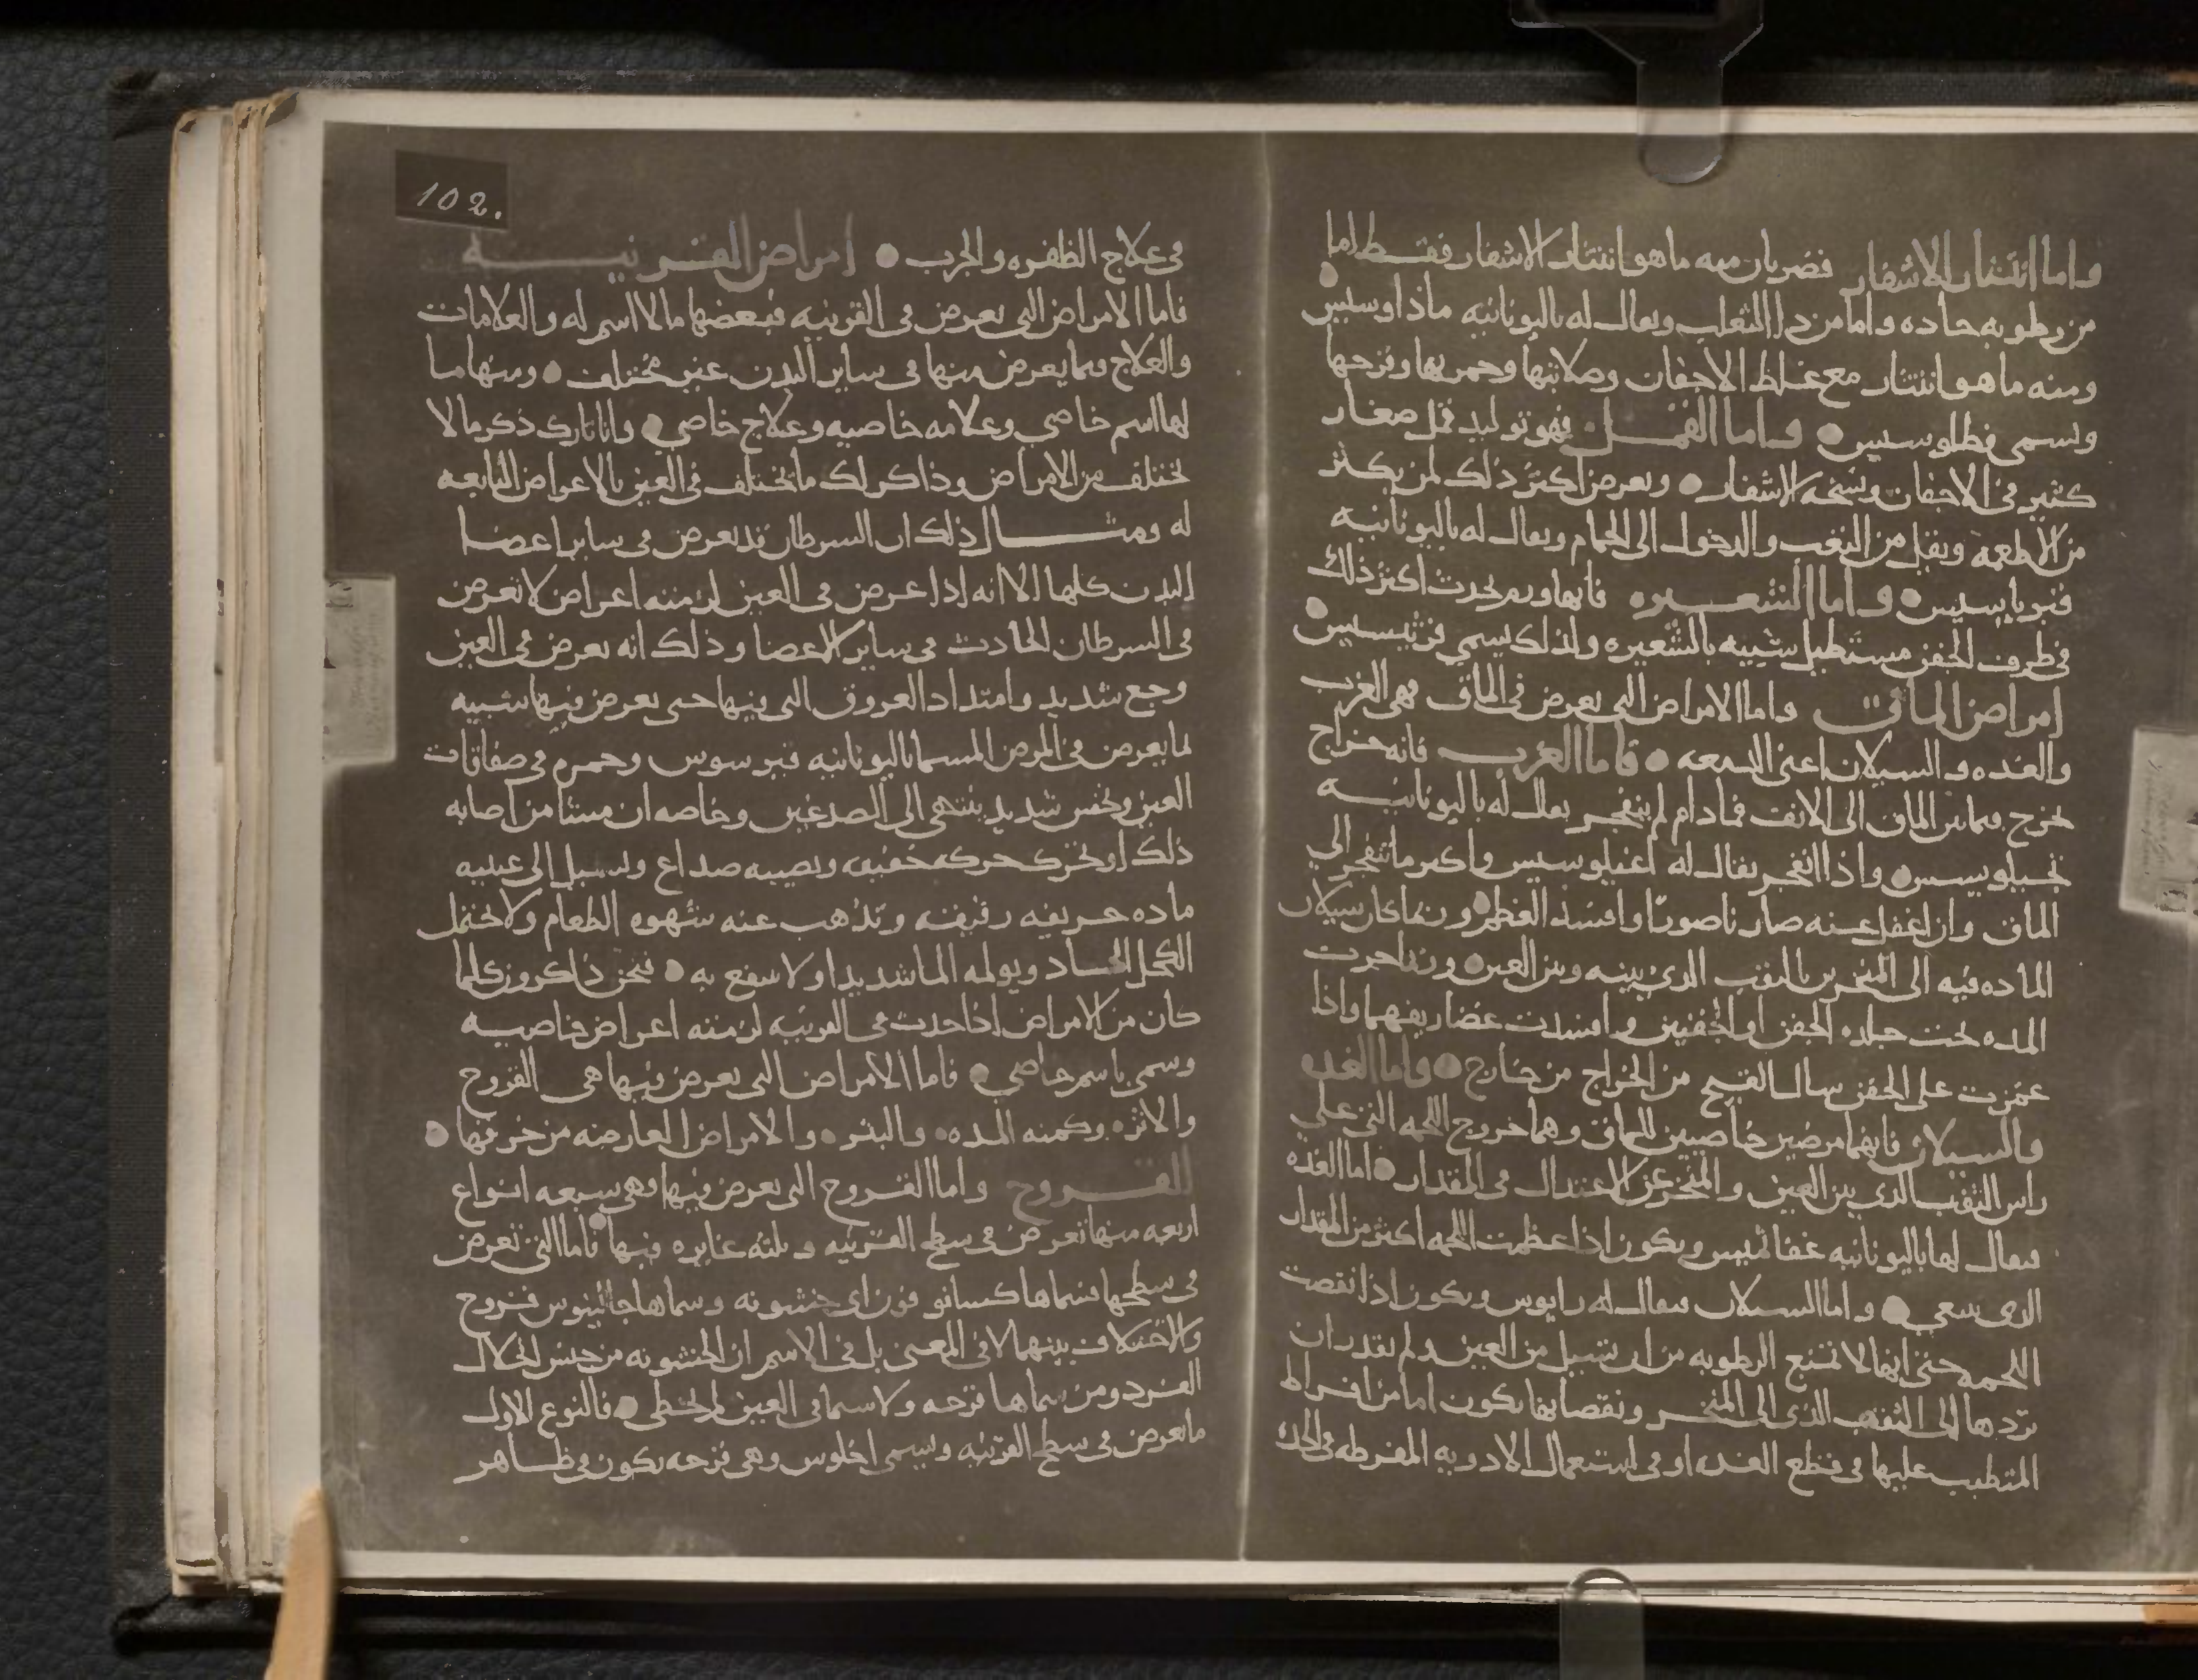 واما انتثار الاشفار فضربان منه ما هو انتثار الاشفار فقط اما
من رطوبه حاده واما من دا الثعلب ويقال له باليونانيه ماذاوسيس
ومنه ما هو انتثار مع غلظ الاجفان وصلابتها وحمرتها وقرحها
وتسمى فطلوسيس واما القمل فهو توليد قمل صغار
كثير في الاجفان وشحه الاشفار ويعرض اكثر ذلك لمن يكثر
من الاطعمه ويقل من التعب والدخول الى الحمام ويقال له باليونانيه
واما الشعيره فانها ورم يحدث اكثر ذلك
في طرف الجفن مستطيل شبيه بالشعيره ولذلك يسمى
امراض الماق واما الامراض التي تعرض في الماق فهي الغرب
والغده والسيلان اعني الدمعه فاما الغرب فانه خراج
يخرج فيما بين الماق الى الانف فما دام لم ينفجر يقال له باليونانيه
واذا انفجر يقال له اغيلوسيس واكثر ما تنفجر الى
الماق وان اغفل عنه صار ناصورا وافسد العظم وربما كان سيلان
الماده فيه الى المنخرين بالثقب الذي بينه وبين العين وربما جرت
المده تحت جلده الجفن او الجفنين وافسدت غضاريفهما واذا
غمزت على الجفن سال القيح من الخراج من خارج واما الغده
والسيلان فانهما مرضين خاصيين للماق وهما خروج اللحمه التي على
راس الثقب الذي بين العين والمنخر عن الاعتدال في المقدار اما الغده
فيقال لها باليونانيه ويكون اذا عظمت اللحمه اكثر من المقدار
الذي ينبغي واما السيلان فيقال له رايوس ويكون اذا نقصت
اللحمه حتى انها لا تمنع الرطوبه من ان تسيل من العين ولم تقدر ان
تردها الى الثقب الذي الى المنخر ونقصانها يكون اما من افراط
المتطبب عليها في قطع الغده او في استعمال الادويه المفرطه في الحده
102.
في علاج الظفره والجرب امراض القرنيه
فاما الامراض التي تعرض في القرنيه فبعضها ما لا اسم له والعلامات
والعلاج فيما يعرض منها في ساير البدن غير مختلف ومنها ما
لها اسم خاصي وعلامه خاصيه وعلاج خاصي وانا تارك ذكر ما لا
تختلف من الامراض وذاكر لك ما تختلف في العين بالاعراض التابعه
له ومثال ذلك ان السرطان قد يعرض في ساير اعضا
البدن كلها الا انه اذا عرض في العين لزمته اعراض لا تعرض
في السرطان الحادث في ساير الاعضا وذلك انه يعرض في العين
وجع شديد وامتداد العروق التي فيها حتى يعرض فيها شبيه
لما يعرض في المرض المسما باليونانيه قبرسوس وحمره في صفاقات
العين ونخس شديد ينتهي الى الصدغين وخاصه ان مشا من اصابه
ذلك او تحرك حركه خفيفه ويصيبه صداع ويسيل الى عينيه
ماده حريفه رقيقه وتذهب عنه شهوه الطعام ولا يحتمل
الكحل الحاد ويولمه الما شديدا ولا ينفع به فنحن ذاكرون كلما
كان من الامراض اذا حدث في القرنيه لزمته اعراض خاصيه
وسمي باسم خاصي فاما الامراض التي تعرض فيها هي القروح
والاثر وكمنه المده والبثر والامراض العارضه من حرقها
القروح واما القروح التي تعرض فيها وهي سبعه انواع
اربعه منها تعرض في سطح القرنيه وثلثه غايره فيها فاما التي تعرض
في سطحها فسماها كسانوفون اي خشونه وسماها جالينوس قروح
والاختلاف بينهما لا في المعنى بل في الاسم ان الخشونه من جنس انحلال
الفرد ومن سماها قرحه ولا سيما في العين لم يخطي فالنوع الاول
ما تعرض في سطح القرنيه ويسمى اخلوس وهي قرحه تكون في ظاهر